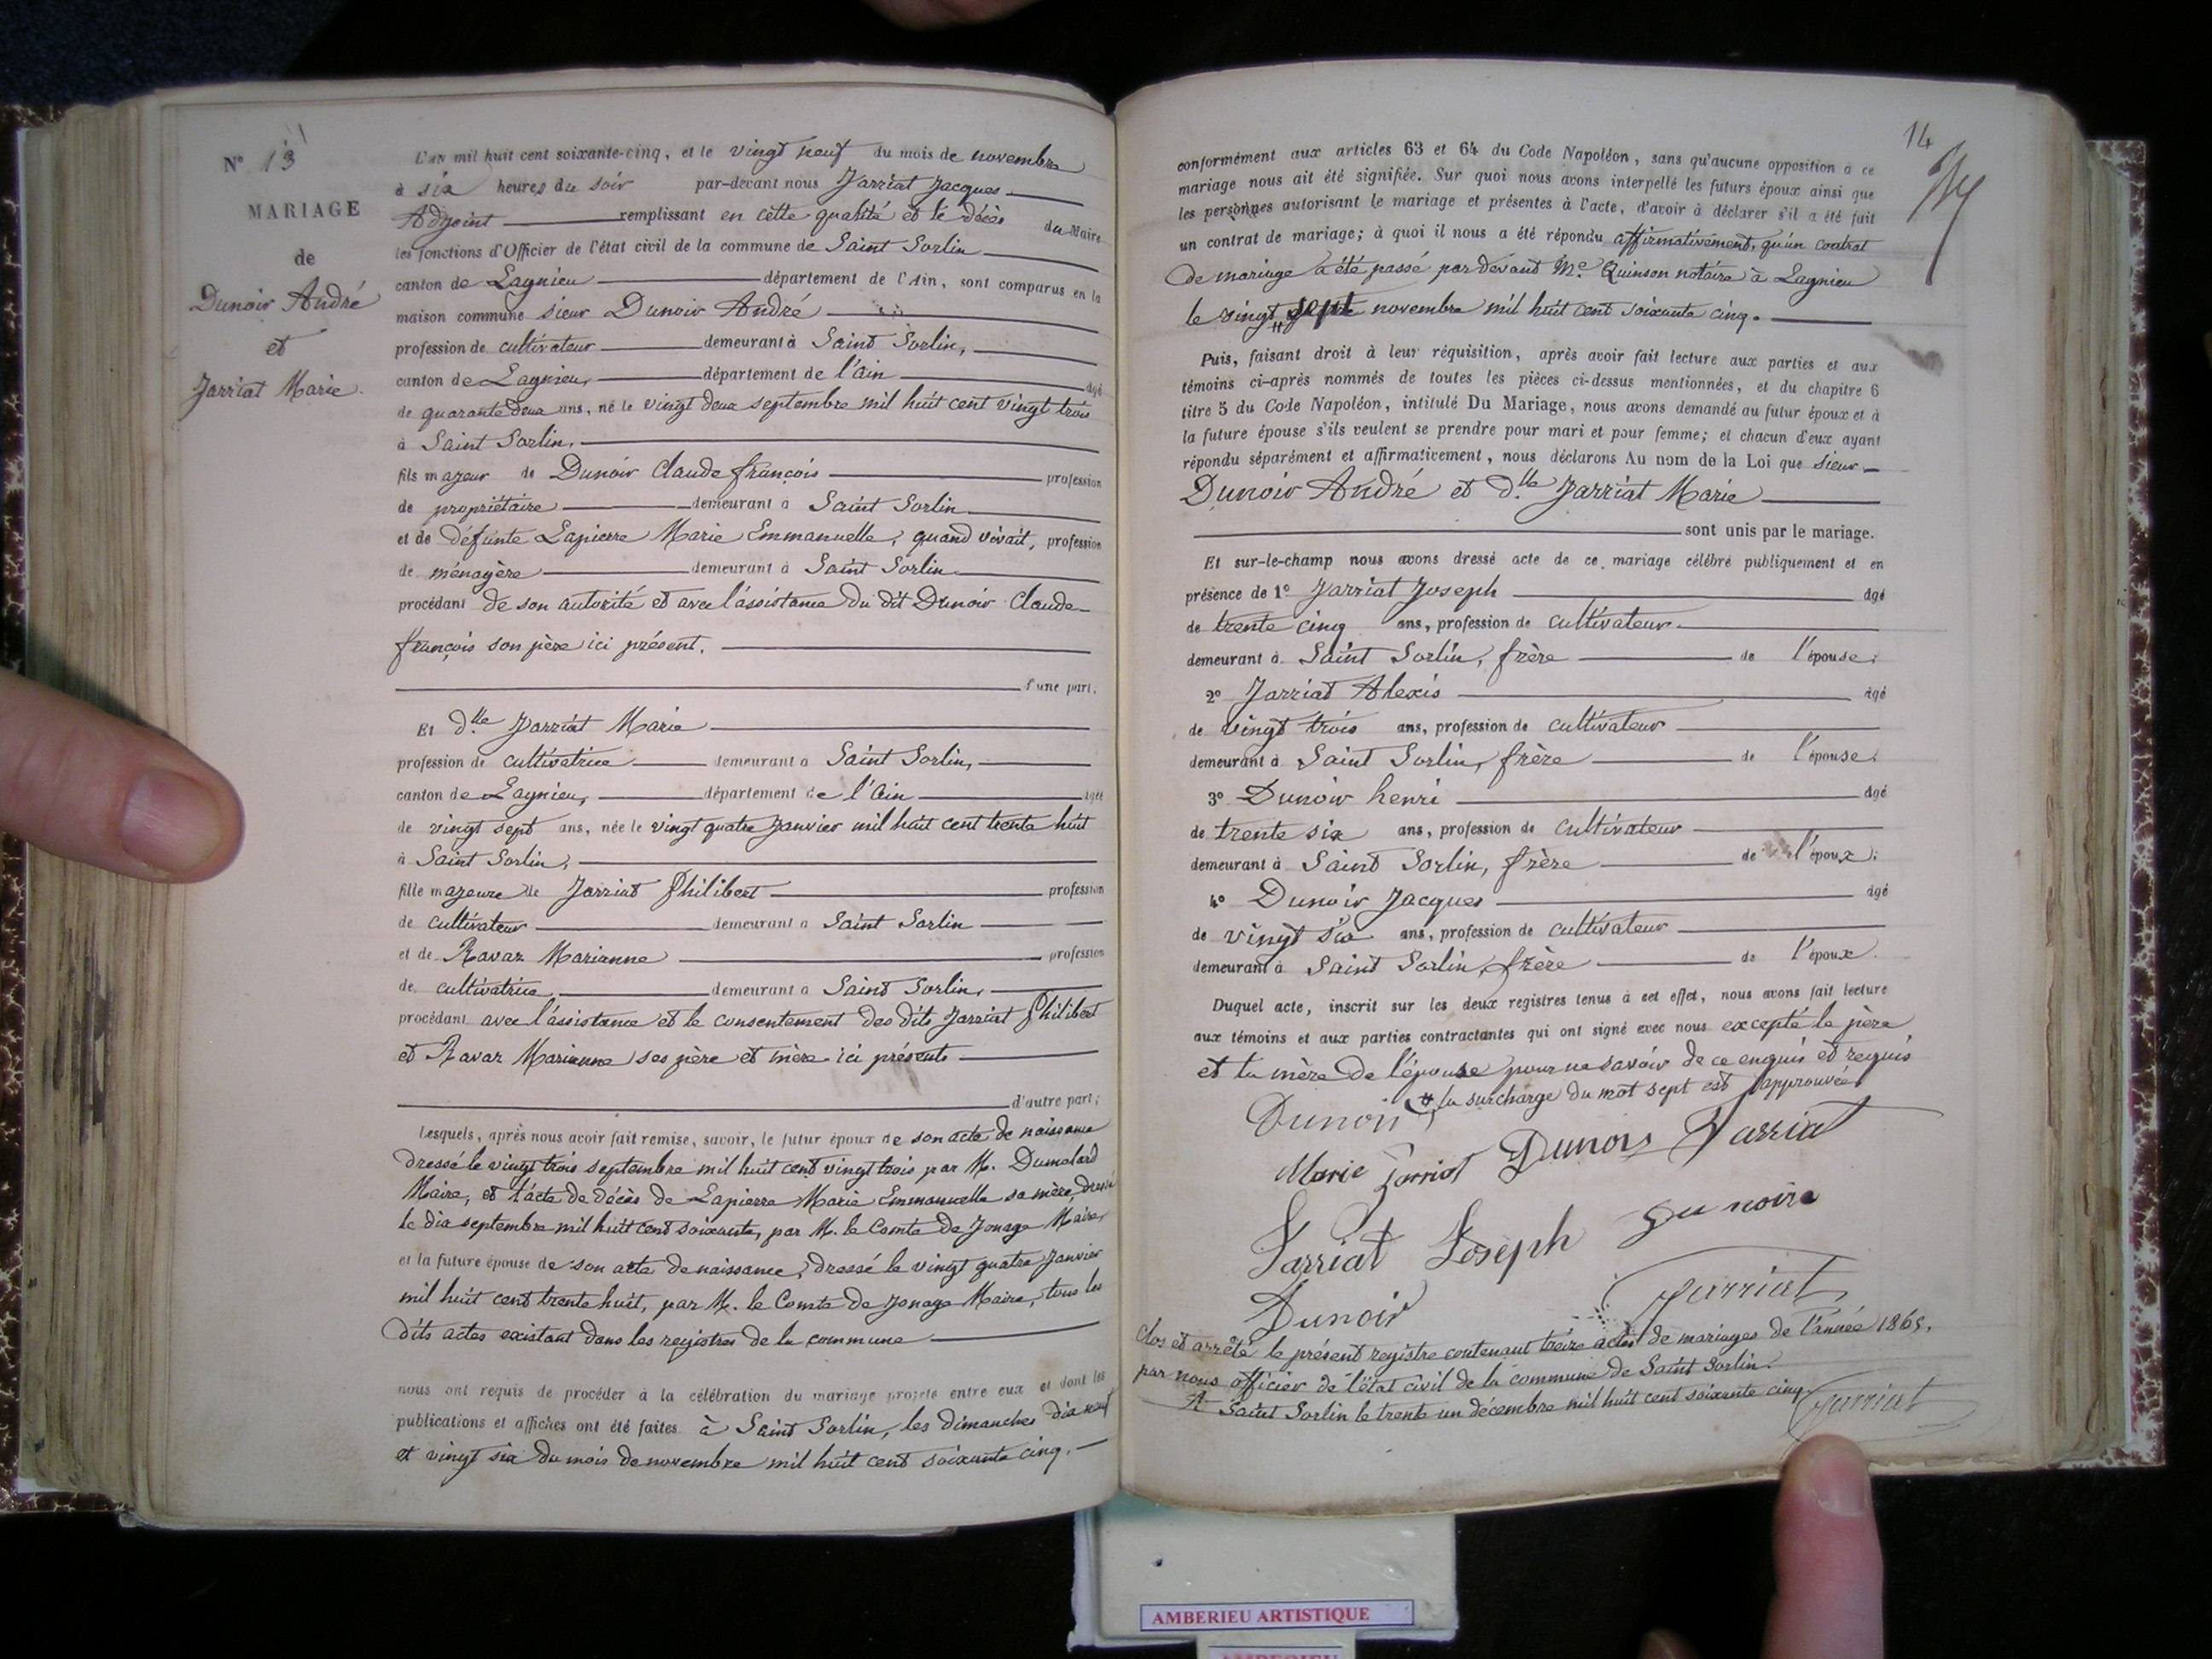 N° 13
MARIAGE
de
Dunoir André
et
Jarriat Marie.
L'an mil huit cent soixante-cinq, et le vingt neuf du mois de novembre
à six heures du soir par-devant nous Jarriat Jacques
Adjoint remplissant en cette qualité et le décès du Maire
les fonctions d'Officier de l'état civil de la commune de Saint Sorlin
canton de Lagnieu département de l'Ain, sont comparus en la
maison commune sieur Dunoir André
profession de cultivateur demeurant à Saint Sorlin,
canton de Lagnieu, département de l'ain âgé
de quarante deux ans, né le vingt deux septembre mil huit cent vingt trois
à Saint Sorlin,
fils majeur de Dunoir Claude françois profession
de propriétaire demeurant à Saint Sorlin
et de défunte Lapierre Marie Emmanuelle, quand vivait, profession
de ménagère demeurant à Saint Sorlin
procédant de son autorité et avec l'assistance du dit Dunoir Claude
françois son père ici présent.
d'une part;
Et dlle Jarriat Marie
profession de cultivatrice demeurant à Saint Sorlin,
canton de Lagnieu, département de l'ain âgée
de vingt sept ans, née le vingt quatre Janvier mil huit cent trente huit
à Saint Sorlin,
fille majeure de Jarriat Philibert profession
de cultivateur demeurant à Saint Sorlin
et de Ravaz Marianne profession
de cultivatrice demeurant à Saint Sorlin,
procédant avec l'assistance et le consentement des dits Jarriat Philibert
et Ravaz Marianne ses père et mère ici présents
d'autre part;
Lesquels, après nous avoir fait remise, savoir, le futur époux de son acte de naissance
dressé le vingt trois septembre mil huit cent vingt trois par M. Dumolard
Maire, et l'acte de décès de Lapierre Marie Emmanuelle sa mère, dressé
le dix septembre mil huit cent soixante, par M. le Comte de Jonage Maire,
et la future épouse de son acte de naissance, dressé le vingt quatre Janvier
mil huit cent trente huit, par M. le Comte de Jonage Maire, tous les
dits actes existant dans les registres de la commune
nous ont requis de procéder à la célébration du mariage projeté entre eux et dont les
publications et affiches ont été faites à Saint Sorlin, les dimanches dix neuf
et vingt six du mois de novembre mil huit cent soixante cinq.
14
conformément aux articles 63 et 64 du Code Napoléon, sans qu'aucune opposition à ce
mariage nous ait été signifiée. Sur quoi nous avons interpellé les futurs époux ainsi que
les personnes autorisant le mariage et présentes à l'acte, d'avoir à déclarer s'il a été fait
un contrat de mariage; à quoi il nous a été répondu affirmativement, qu'un contrat
de mariage a été passé par devant Me Quinson notaire à Lagnieu
le vingt sept novembre mil huit cent soixante cinq.
Puis, faisant droit à leur réquisition, après avoir fait lecture aux parties et aux
témoins ci-après nommés de toutes les pièces ci-dessus mentionnées, et du chapitre 6
titre 5 du Code Napoléon, intitulé Du Mariage, nous avons demandé au futur époux et à
la future épouse s'ils veulent se prendre pour mari et pour femme; et chacun d'eux ayant
répondu séparément et affirmativement, nous déclarons Au nom de la Loi que sieur
Dunoir André et dlle Jarriat Marie
sont unis par le mariage.
Et sur-le-champ nous avons dressé acte de ce mariage célébré publiquement et en
présence de 1° Jarriat Joseph âgé
de trente cinq ans, profession de cultivateur
demeurant à Saint Sorlin, frère de l'épouse;
2° Jarriat Alexis âgé
de vingt trois ans, profession de cultivateur
demeurant à Saint Sorlin, frère de l'épouse.
3° Dunoir henri âgé
de trente six ans, profession de cultivateur
demeurant à Saint Sorlin, frère de l'époux;
4° Dunoir Jacques âgé
de vingt six ans, profession de cultivateur
demeurant à Saint Sorlin, frère de l'époux.
Duquel acte, inscrit sur les deux registres tenus à cet effet, nous avons fait lecture
aux témoins et aux parties contractantes qui ont signé avec nous excepté le père
et la mère de l'épouse pour ne savoir de ce enquis et requis
# la surcharge du mot sept est approuvée
Dunoir
Marie Jarriat Dunoir Jarriat
Jarriat Joseph Dunoire
Dunoir Jarriat
Clos et arrêté le présent registre contenant treize actes de mariages de l'année 1865.
par nous officier de l'état civil de la commune de Saint Sorlin.
A Saint Sorlin le trente un décembre mil huit cent soixante cinq
Jarriat
AMBERIEU ARTISTIQUE
AMBERIEU